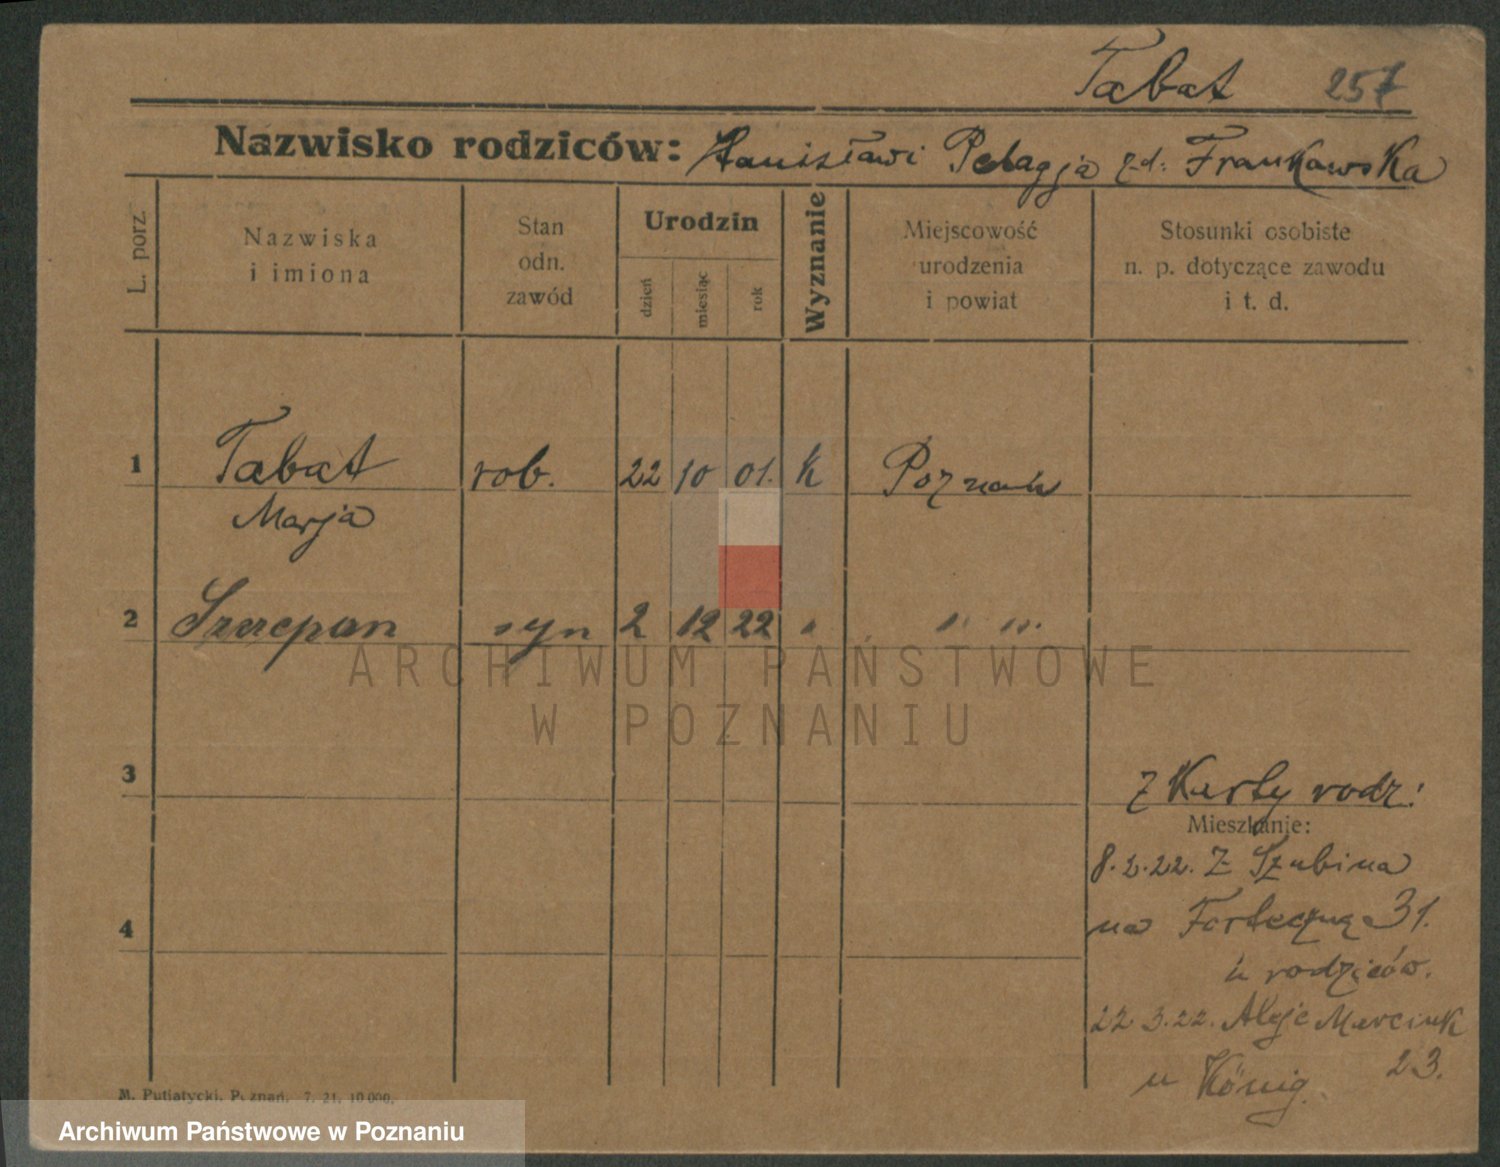 Tabat 257
Nazwisko rodziców: Stanisław i Pelagja zd. Frankowska
L. porz.
Nazwiska
i imiona
Stan
odn.
zawód
Urodzin
dzień
miesiąc
rok
Wyznanie
Miejscowość
urodzenia
i powiat
Stosunki osobiste
n. p. dotyczące zawodu
i t. d.
1 Tabat rob. 22 10 01. k Poznań
Marja
2 Szczepan syn 2 12 22 " " "
ARCHIWUM PAŃSTWOWE
W POZNANIU
3
z Karty rodz:
Mieszkanie:
8.2.22. Z Szubina
4
na Forteczną 31.
u rodziców.
22.3.22. Aleje Marcink
23.
u König.
M. Putiatycki, Poznań. 7. 21. 10 000.
Archiwum Państwowe w Poznaniu